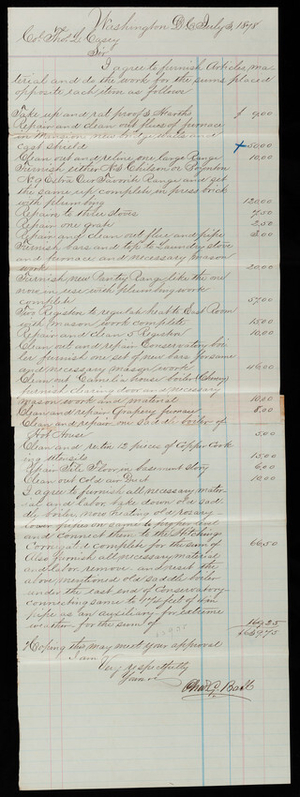 Washington D C July 3, 1878
Col Thos L Casey
Sir
I agree to furnish Articles, ma-
terial and do the work for the sums placed
opposite each item as follows
Take up and rat proof 3 Hearths $ 9.00
Repair and clean out flues of furnace
in Mansion new
cast shield 50.00
Clean out and reline one large Range 10.00
Furnish either No 8 Chilson or Boynton
No 9 Extra Our Favorite Range and set
the same up complete in press brick
with plumbing 120.00
Repair to three stoves 7.50
Repair one grate 2.50
Repair and clean out flue and pipe 3.00
Furnish bars and top to Laundry stove
and furnace and necessary mason
work 20.00
Furnish new Pantry Range like the one
now in use with plumbing work
complete 57.00
Two Registers to regulate heat to East Room
with mason work complete 15.00
Repair and clean 5 Registers 10.00
Clean out and repair Conservatory boi-
ler furnish one set of new bars for same
and necessary mason work 46.00
Clean out Camelia house boiler
furnish cleaning door and necessary
mason work and material 10.00
Clean and repair Grapery furnace 8.00
Clean and repair one saddle boiler of
Hot House 5.00
Clean and retin 12 pieces of Copper Cook-
ing Utensils 15.00
Repair Tile Floor in basement Story 6.00
Clean out Cold air Duct 10.00
I agree to furnish all necessary mater-
ial and labor, take down old sad-
dle boiler, now heating old rosary
lower pipes on same to proper level
and connect them to the Hitchings
Corrugated complete for the sum of 66.50
Also furnish all necessary material
and labor, remove and reset the
above mentioned old saddle boiler
under the east end of Conservatory
connecting same to 172 feet of 4 in
pipe as an auxiliary for extreme
weather for the sum of 169.25
$639.75
Hoping this may meet your approval
I am
Very respectfully
Yours
Chas G. Ball